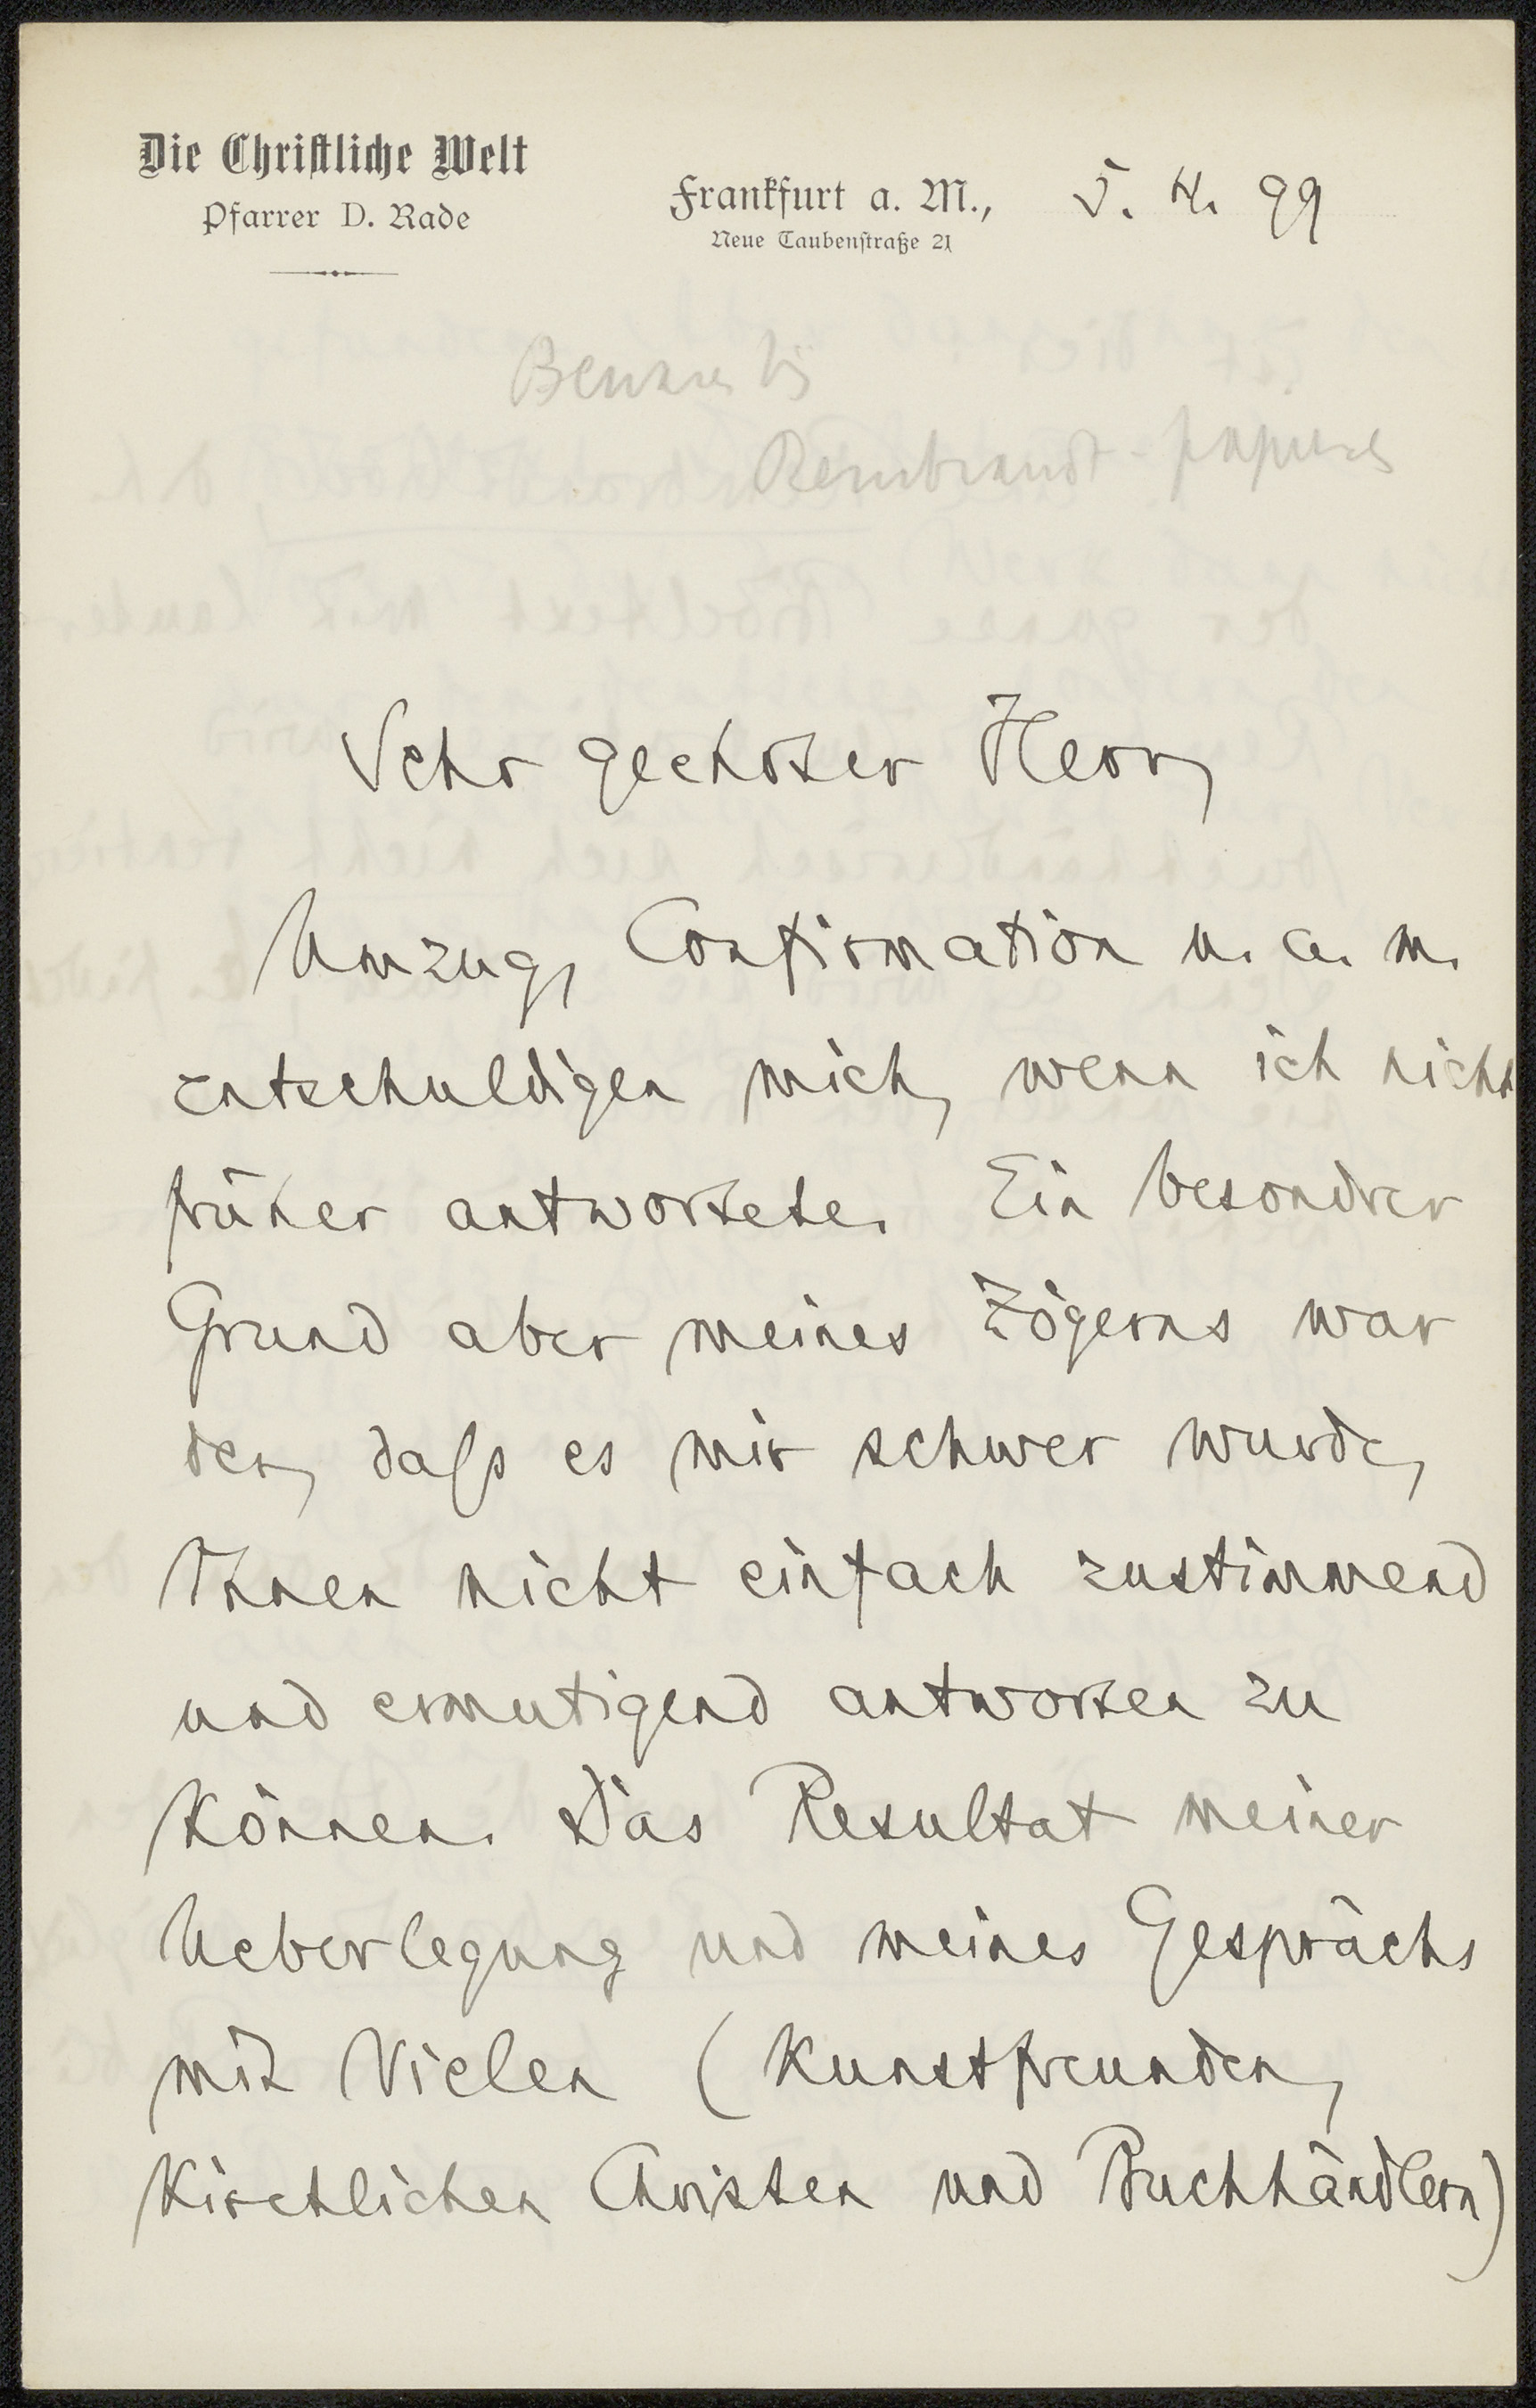 Die Christliche Welt
Pfarrer D. Rade
Frankfurt a. M., 5. 4. 99
Neue Taubenstraße 21
Rembrandt-papieren
Sehr geehrter Herr,
Umzug, Confirmation u. a. m.
entschuldigen mich, wenn ich nicht
früher antwortete. Ein besondrer
Grund aber meines Zögerns war
der, daß es mir schwer wurde,
Ihnen nicht einfach zustimmend
und ermutigend antworten zu
können. Das Resultat meiner
Ueberlegung und meines Gesprächs
mit Vielen (Kunstfreunden,
Kirchlichen Christen und Buchhändlern)